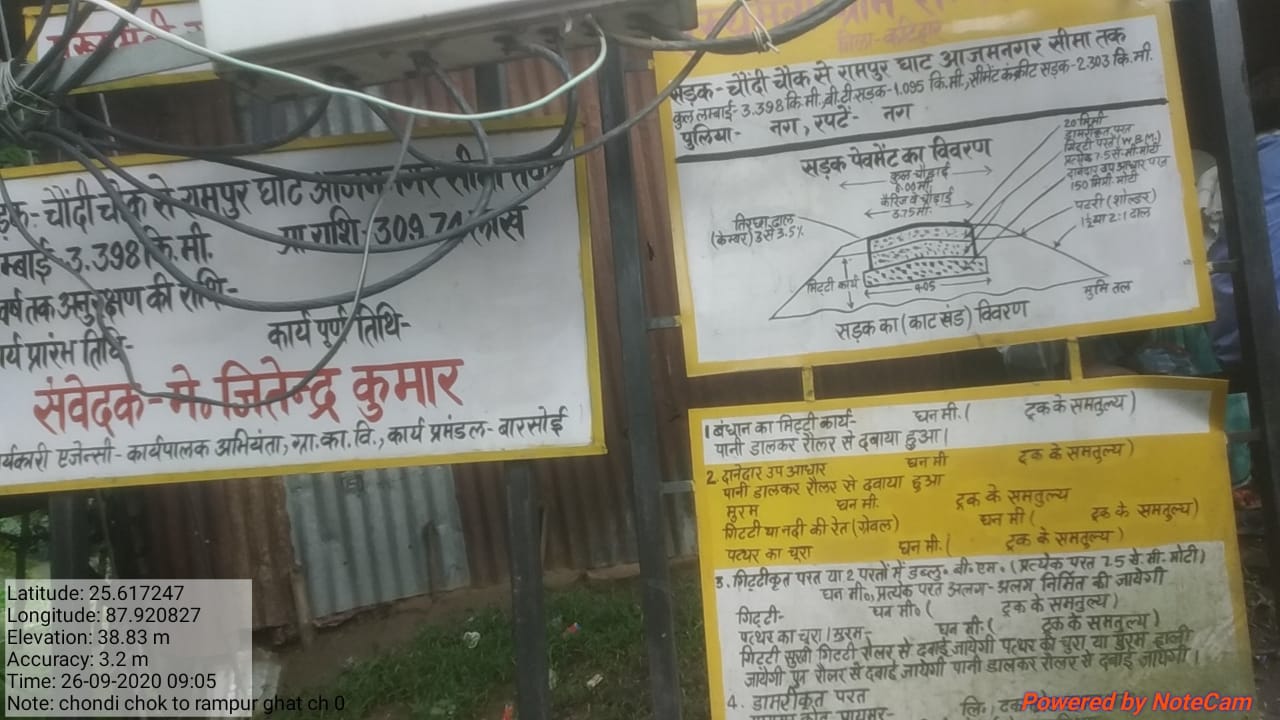 सड़क- चौंदी चौक से रामपुर घाट आजमनगर सीमा तक
लम्बाई- 3.398 कि.मी. प्रा. राशि- 309.74 लाख
वर्ष तक अनुरक्षण की राशि-
कार्य प्रारंभ तिथि- कार्य पूर्ण तिथि-
संवेदक- मे० जितेन्द्र कुमार
कार्यकारी एजेन्सी- कार्यपालक अभियंता, ग्रा.का.वि., कार्य प्रमंडल- बारसोई
जिला- कटिहार
सड़क- चौंदी चौक से रामपुर घाट आजमनगर सीमा तक
कुल लम्बाई- 3.398 कि.मी., बी.टी सड़क- 1.095 कि.मी., सीमेंट कंक्रीट सड़क- 2.303 कि.मी.
पुलिया- नग, रपटें- नग
सड़क पेवमेंट का विवरण
कुल चौड़ाई
6.00 मी.
कैरिज वे चौड़ाई
3.75 मी.
तिरछा ढाल
(केम्बर) 3 से 3.5%
20 मि.मी
डामरीकृत परत
गिट्टी परत (W.B.M.)
प्रत्येक 7.5 से.मी. मोटी
दानेदार उप आधार परत
150 मि.मी. मोटी
पटरी (शोल्डर)
1½ या 2:1 ढाल
मिट्टी कार्य
4.05
भुमि तल
सड़क का (काट खंड) विवरण
1 बंधान का मिट्टी कार्य- घन मी. ( ट्रक के समतुल्य )
पानी डालकर रौलर से दबाया हुआ।
2. दानेदार उप आधार घन मी ट्रक के समतुल्य )
पानी डालकर रौलर से दबाया हुआ
मुरम घन मी. ट्रक के समतुल्य
गिट्टी या नदी की रेत (ग्रेवल) घन मी ( ट्रक के समतुल्य )
पत्थर का चूरा घन मी. ( ट्रक के समतुल्य )
3. गिट्टीकृत परत या 2 परतों में डब्लु॰ बी॰ एम॰ (प्रत्येक परत 7.5 से. मी. मोटी )
घन मी॰, प्रत्येक परत अलग- अलग निर्मित की जायेगी
गिट्टी- घन मी॰ ( ट्रक के समतुल्य )
पत्थर का चूरा / मुरम घन मी. ( ट्रक के समतुल्य )
गिट्टी सुखी गिट्टी रौलर से दबाई जायेगी पत्थर का चुरा या मुरम डाली
जायेगी पुन रौलर से दबाई जायेगी पानी डालकर रौलर से दबाई जायेगी।
4. डामरीकृत परत
लि. ट्रक
Latitude: 25.617247
Longitude: 87.920827
Elevation: 38.83 m
Accuracy: 3.2 m
Time: 26-09-2020 09:05
Note: chondi chok to rampur ghat ch 0
Powered by NoteCam